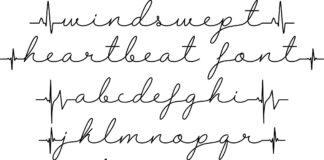 windswept
heartbeat font
abcdefghi
jklmnopqr